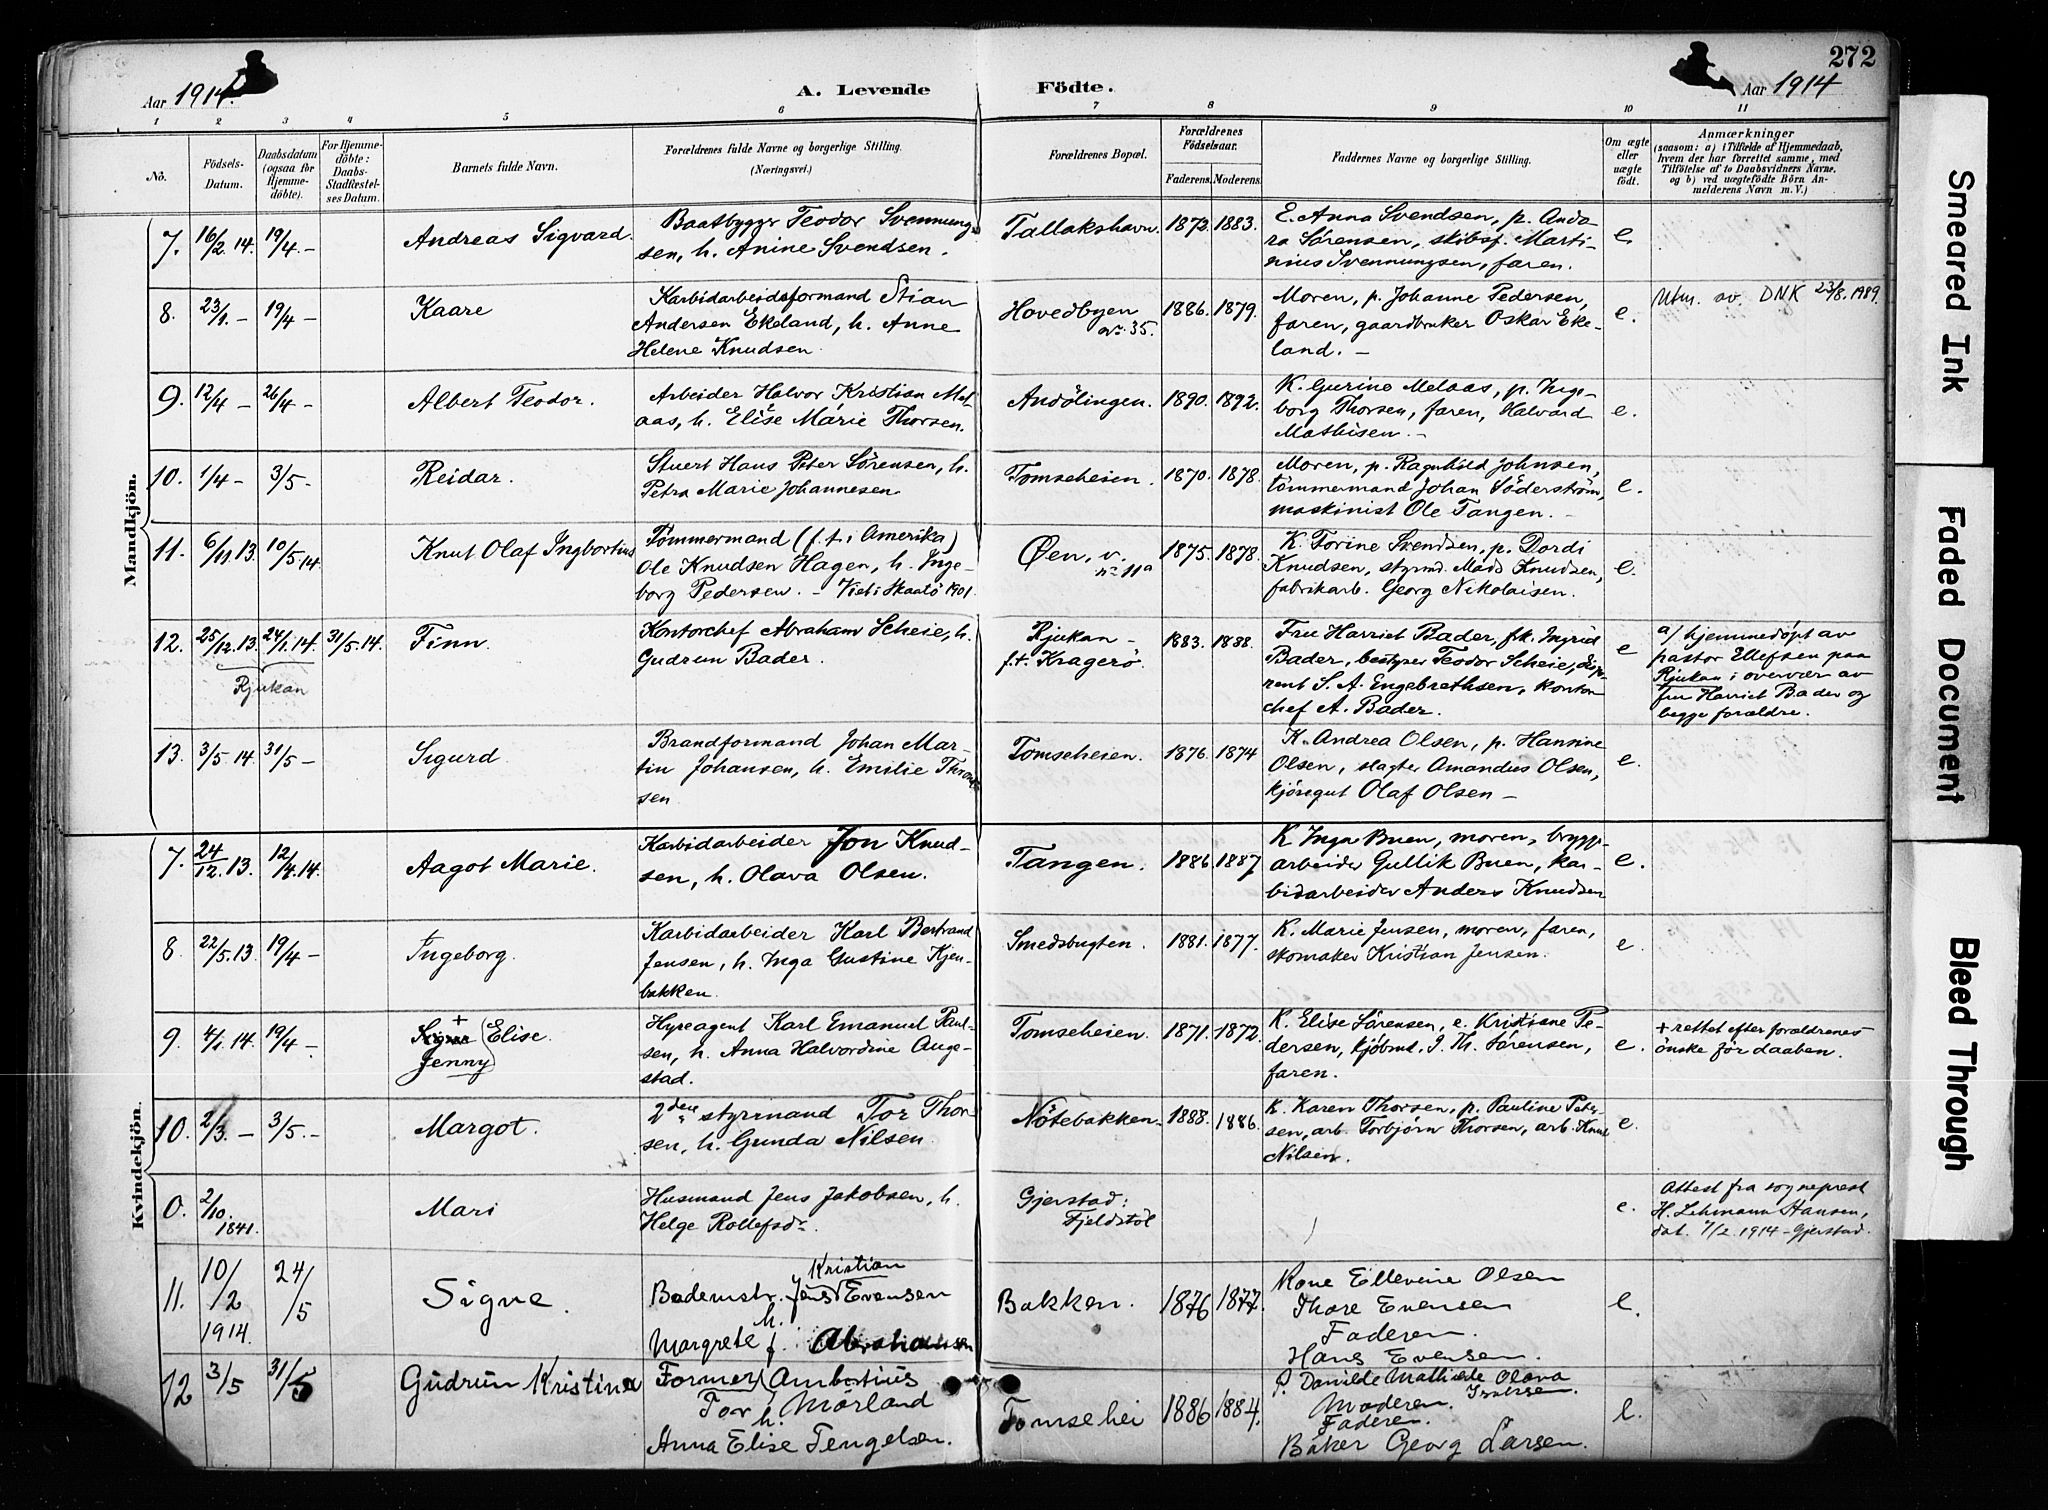 272
Aar 1914.
A. Levende Födte.
Aar 1914
1 2 3 4 5 6 7 8 9 10 11
No.
Födsels-Datum.
Daabsdatum (ogsaa for Hjemmedöbte).
For Hjemmedöbte: Daabs-Stadfæstelses Datum.
Barnets fulde Navn.
Forældrenes fulde Navne og borgerlige Stilling.
(Næringsvei.)
Forældrenes Bopæl.
Forældrenes Födselsaar.
Faderens. Moderens.
Faddernes Navne og borgerlige Stilling.
Om ægte eller uægte födt.
Anmærkninger
(saasom: a) i Tilfælde af Hjemmedaab, hvem der har forrettet samme, med Tilföielse af to Daabsvidners Navne, og b) ved uægtefödte Börn Anmelderens Navn m. V.)
Mandkjön.
7. 16/2.14. 19/4.- Andreas Sigvard. Baatbygger Teodor Svennung-
sen, h. Anine Svendsen. Tallakshavn. 1872. 1883. E. Anna Svendsen, p. Ando-
ra Sørensen, skibsf. Marti-
nius Svennungsen, faren. e.
8. 23/1.- 19/4- Kaare Karbidarbeidsformand Stian
Andersen Ekeland, h. Anne
Helene Knudsen. Hovedbyen
nr. 35. 1886. 1879. Moren, p. Johanne Pedersen,
faren, gaardbruker Oskar Eke-
land. - e. Utm. av. DNK 23/8.1989.
9. 12/4- 26/4- Albert Teodor. Arbeider Halvor Kristian Mel-
aas, h. Elise Marie Thorsen. Andölingen. 1890. 1892. K. Gurine Melaas, p. Inge-
borg Thorsen, faren, Halvard
Mathisen. - e.
10. 1/4- 3/5- Reidar. Stuert Hans Peter Sörensen, h.
Petra Marie Johannesen Tomseheien. 1870. 1878. Moren, p. Ragnhild Johnsen,
tömmermand Johan Söderström,
maskinist Ole Tangen. - e.
11. 6/11.13. 10/5.14. Knut Olaf Ingbortius Tömmermand (f.t. i Amerika)
Ole Knudsen Hagen, h. Inge-
borg Pedersen. - Viet i Skaatö 1901. Øen, v.
nr 11a 1875. 1878. K. Torine Svendsen, p. Dordi
Knudsen, styrmd. Mads Knudsen,
fabrikarb. Georg Nikolaisen. e.
12. 25/12.13. 24/1.14. 31/5.14. Finn. Kontorchef Abraham Scheie, h.
Gudrun Bader. Rjukan -
f.t. Kragerö. 1883. 1888. Fru Harriet Bader, frk. Ingrid
Bader, bestyrer Teodor Scheie, disp.
rent S. A. Engebrethsen, kontor
chef A. Bader. e a) hjemmedöpt av
pastor Ellefsen paa
Rjukan i overvær av
fru Harriet Bader og
begge forældre.
Rjukan
13. 3/5.14. 31/5- Sigurd. Brandformand Johan Mar-
tin Johansen, h. Emilie Thom-
sen. Tomseheien. 1876. 1874 K. Andrea Olsen, p. Hansine
Olsen, slagter Amandus Olsen,
kjöregut Olaf Olsen - e.
Kvindekjön.
7. 24/12.13. 12/4.14. Aagot Marie. Karbidarbeider Jon Knud-
sen, h. Olava Olsen. Tangen. 1886. 1887. K Inga Buen, moren, brygge-
arbeider Gullik Buen, kar-
bidarbeider Anders Knudsen e.
8. 22/5.13. 19/4- Ingeborg. Karbidarbeider Karl Bertrand
Jensen, h. Inga Gustine Kjen-
bakken. Smedsbugten. 1881. 1877. K. Marie Jensen, moren, faren,
skomaker Kristian Jensen. e.
9. 4/1.14. 19/4-. Signe + Elise.
Jenny Hyreagent Karl Emanuel Paul-
sen, h. Anna Halvordine Ange-
stad. Tomseheien. 1871. 1872. K. Elise Sörensen, e. Kristiane Pe-
dersen, kjöbmd. J. Th. Sörensen,
faren. e. + rettet efter forældrenes
önske för daaben.
10. 2/3.- 3/5.- Margot. 2den styrmand Tor Thor-
sen, h. Gunda Nilsen. Nötebakken. 1888. 1886. K. Karen Thorsen, p. Pauline Peter-
sen, arb. Torbjörn Thorsen, arb. Knut
Nilsen. e.
0. 2/10.1841. Mari Husmand Jens Jakobsen, h.
Helge Rollefsdr. Gjerstad:
Fjeldstöl e. Attest fra sogneprest
H. Lehmann Hansen,
dat. 7/2 1914 - Gjerstad.
11. 10/2 1914. 24/5 Signe. Bademstr. Jens Kristian Evensen
h.
Margrete f. Abrahamsen Bakken. 1876 1877. Kone Ellevine Olsen
Thore Evensen
Faderen.
Hans Evensen. e.
12 3/5 31/5 Gudrun Kristina Former Ambortius
Tor Mörland
h.
Anna Elise Tengelsen. Tomsehei 1886 1884. P. Danilde Mathilde Olava
Isaksen.
Moderen.
Faderen.
Baker Georg Larsen. e.
Smeared Ink
Faded Document
Bleed Through